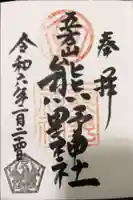 奉拝
五方山
熊野神社
令和六年一月二四日